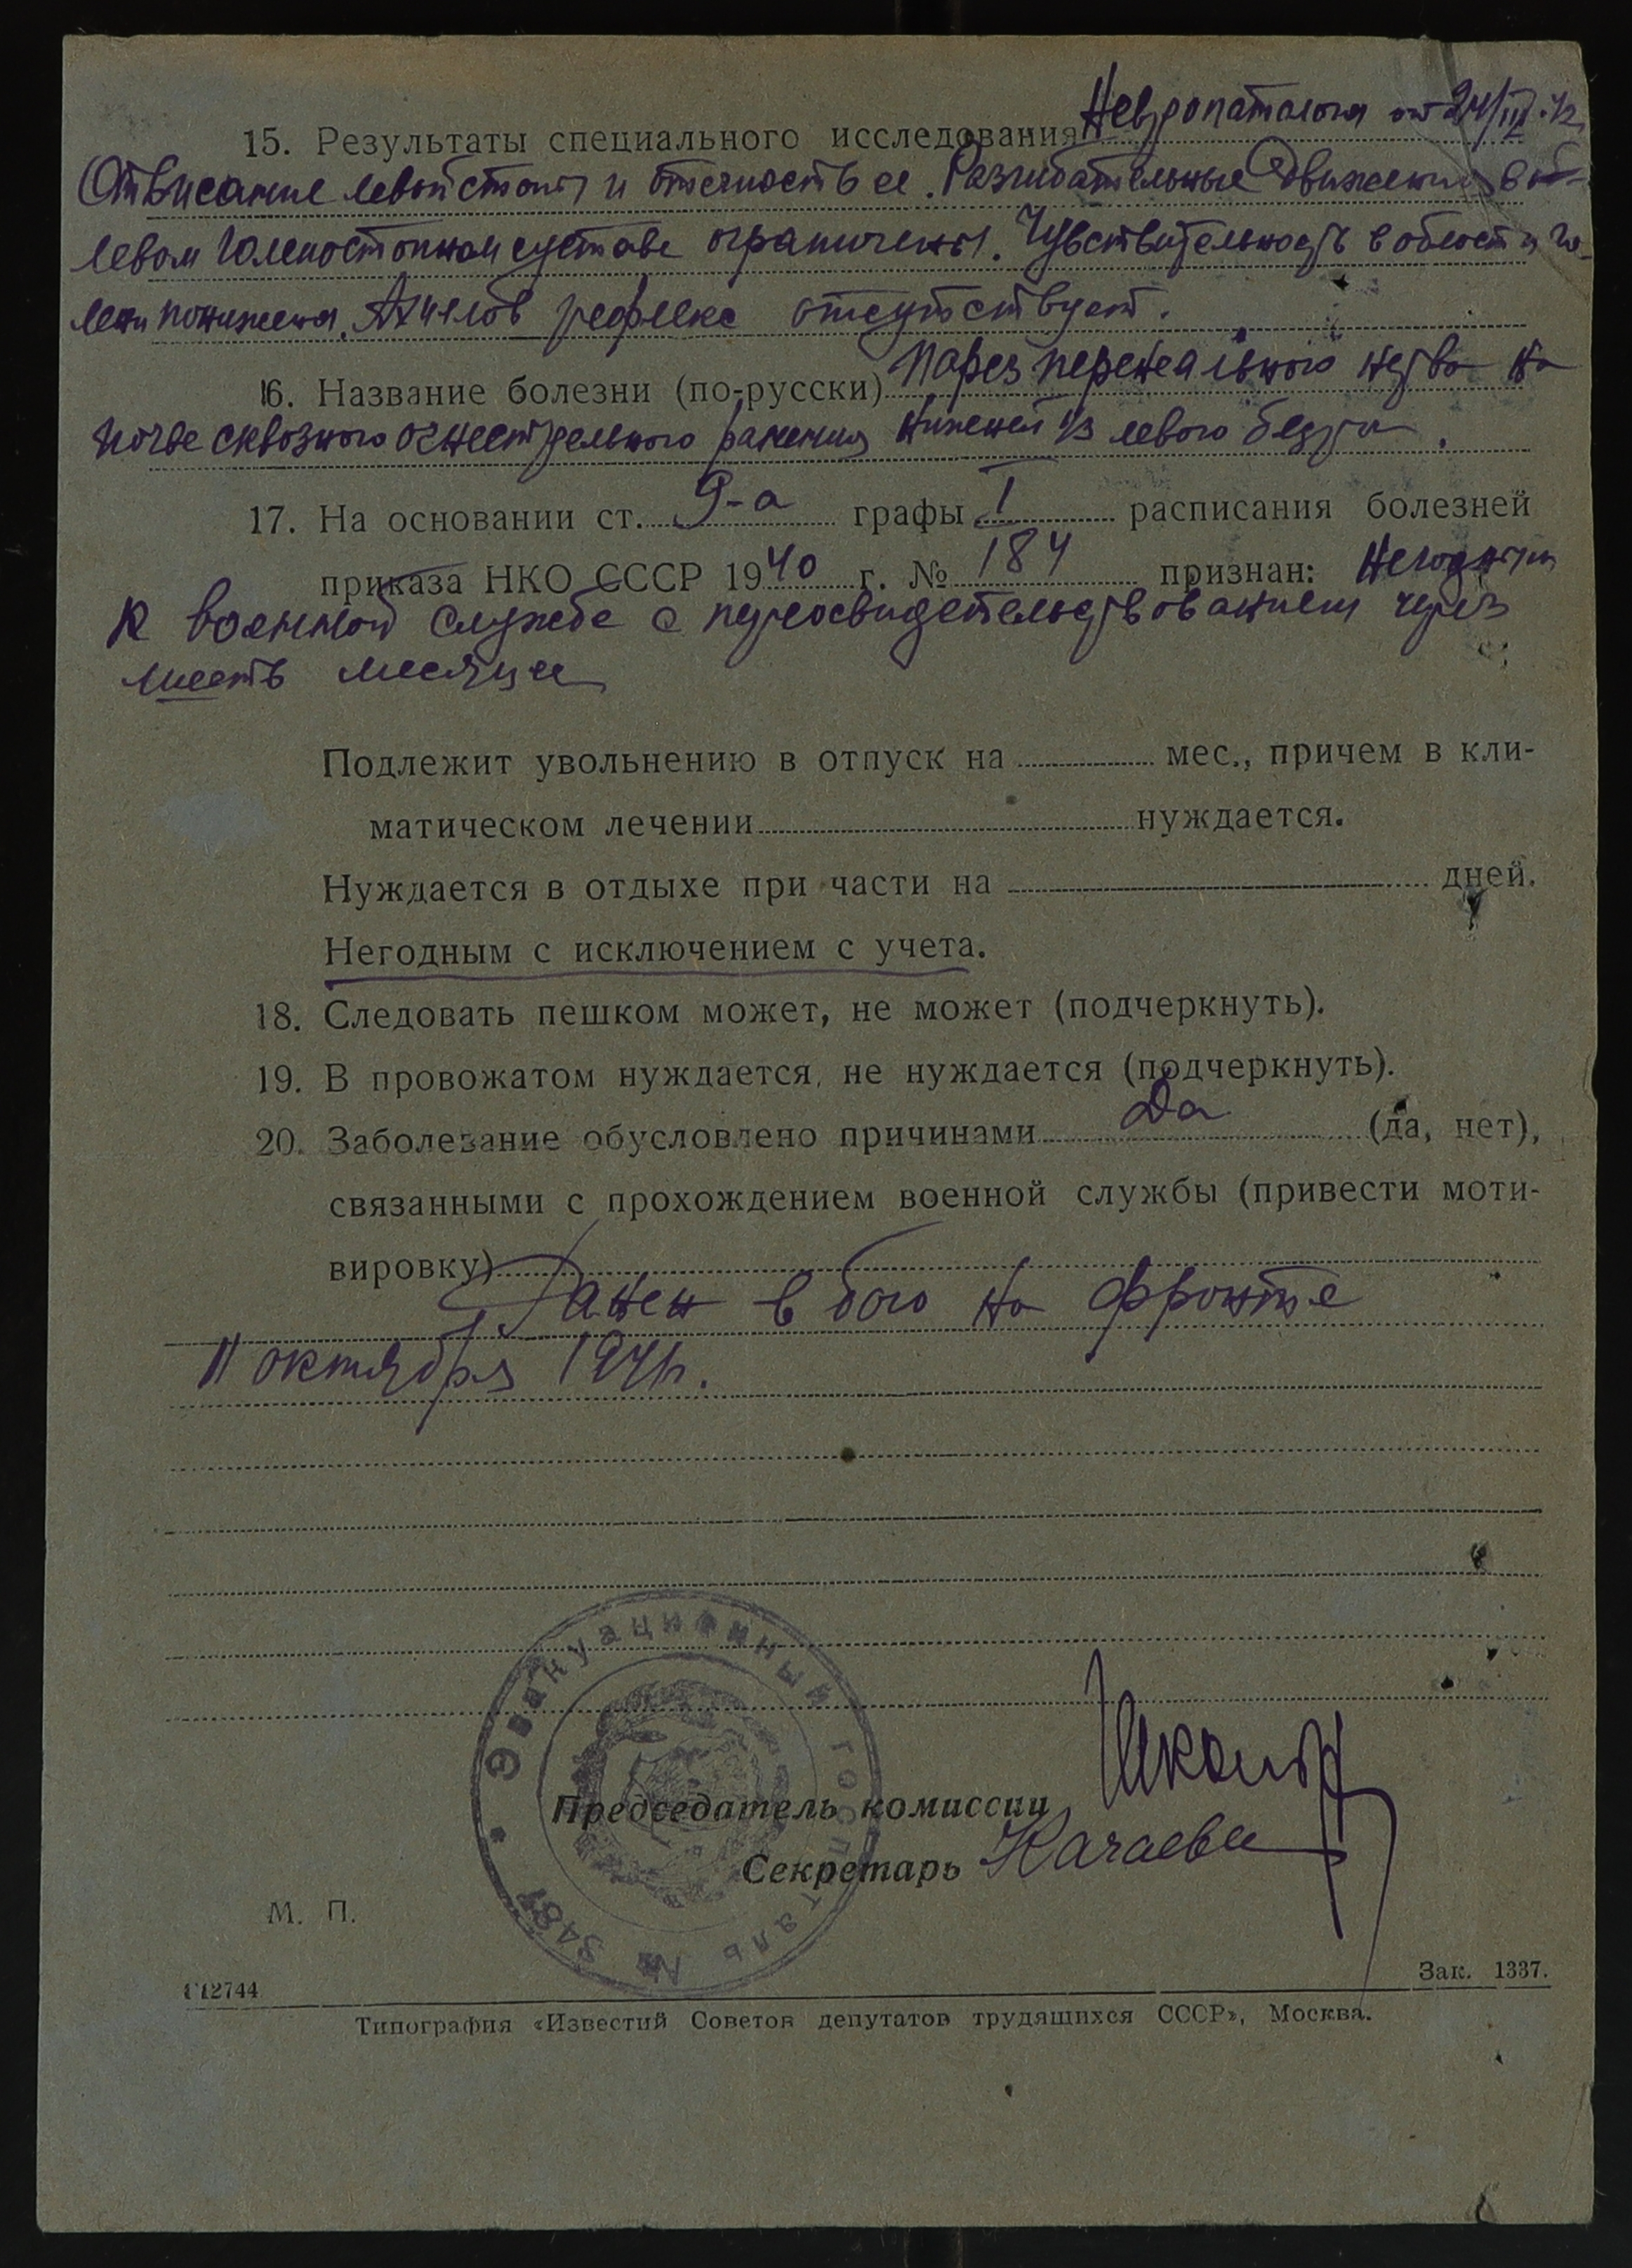 15. Результаты специального исследования Невропатолога от 24/III.42
Отвисание левой стопы и отечность ее. Разгибательные движения в
левом голеностопном суставе ограничены. Чувствительность в области го-
лени понижена. Ахиллов рефлекс отсутствует.
16. Название болезни (по-русски) Парез перенеального нерва на
почве сквозного огнестрельного ранения нижней 1/3 левого бедра.
17. На основании ст. 9-а графы I расписания болезней
приказа НКО СССР 1940 г. № 184 признан: негодным
к военной службе с переосвидетельствованием через
шесть месяцев
Подлежит увольнению в отпуск на мес., причем в кли-
матическом лечении нуждается.
Нуждается в отдыхе при части на дней.
Негодным с исключением с учета.
18. Следовать пешком может, не может (подчеркнуть).
19. В провожатом нуждается, не нуждается (подчеркнуть).
20. Заболевание обусловлено причинами Да (да, нет),
связанными с прохождением военной службы (привести моти-
вировку)
Ранен в бою на фронте
11 октября 1941г.
Эвакуационный госпиталь № 3481
Председатель комиссии
Секретарь Качаева
М. П.
Г12744 Зак. 1337.
Типография «Известий Советов депутатов трудящихся СССР», Москва.